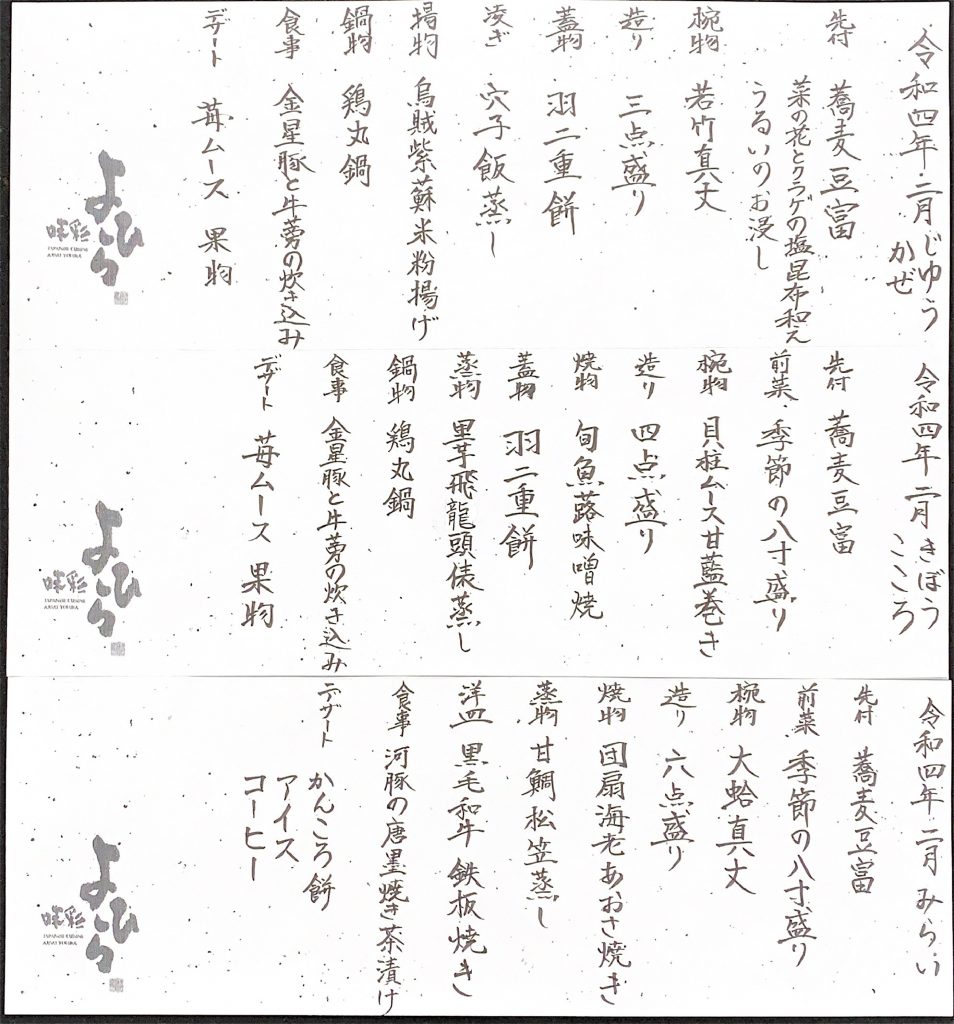 令和四年二月 じゆう
かぜ
先付 蕎麦豆富
菜の花とクラゲの塩昆布和え
うるいのお浸し
椀物 若竹真丈
造り 三点盛り
蓋物 羽二重餅
凌ぎ 穴子飯蒸し
揚物 烏賊紫蘇米粉揚げ
鍋物 鶏丸鍋
食事 金星豚と牛蒡の炊き込み
デザート 苺ムース 果物
よひら
JAPANESE CUISINE
令和四年 二月 きぼう
こころ
先付 蕎麦豆富
前菜 季節の八寸盛り
椀物 貝柱ムース甘藍巻き
造り 四点盛り
焼物 旬魚蕗味噌焼
蓋物 羽二重餅
蒸物 里芋飛龍頭俵蒸し
鍋物 鶏丸鍋
食事 金星豚と牛蒡の炊き込み
デザート 苺ムース 果物
よひら
JAPANESE CUISINE
令和四年 二月 みらい
先付 蕎麦豆富
前菜 季節の八寸盛り
椀物 大蛤真丈
造り 六点盛り
焼物 団扇海老あおさ焼き
蒸物 甘鯛松笠蒸し
洋皿 黒毛和牛 鉄板焼き
食事 河豚の唐墨焼き茶漬け
デザート かんころ餅
アイス
コーヒー
よひら
JAPANESE CUISINE